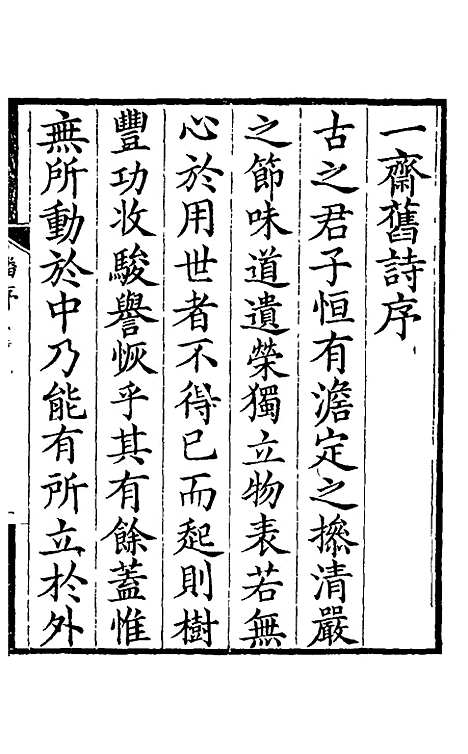 一齋舊詩序
古之君子恒有澹定之操清嚴
之節味道遺榮獨立物表若無
心於用世者不得已而起則樹
豐功收駿譽恢乎其有餘蓋惟
無所動於中乃能有所立於外